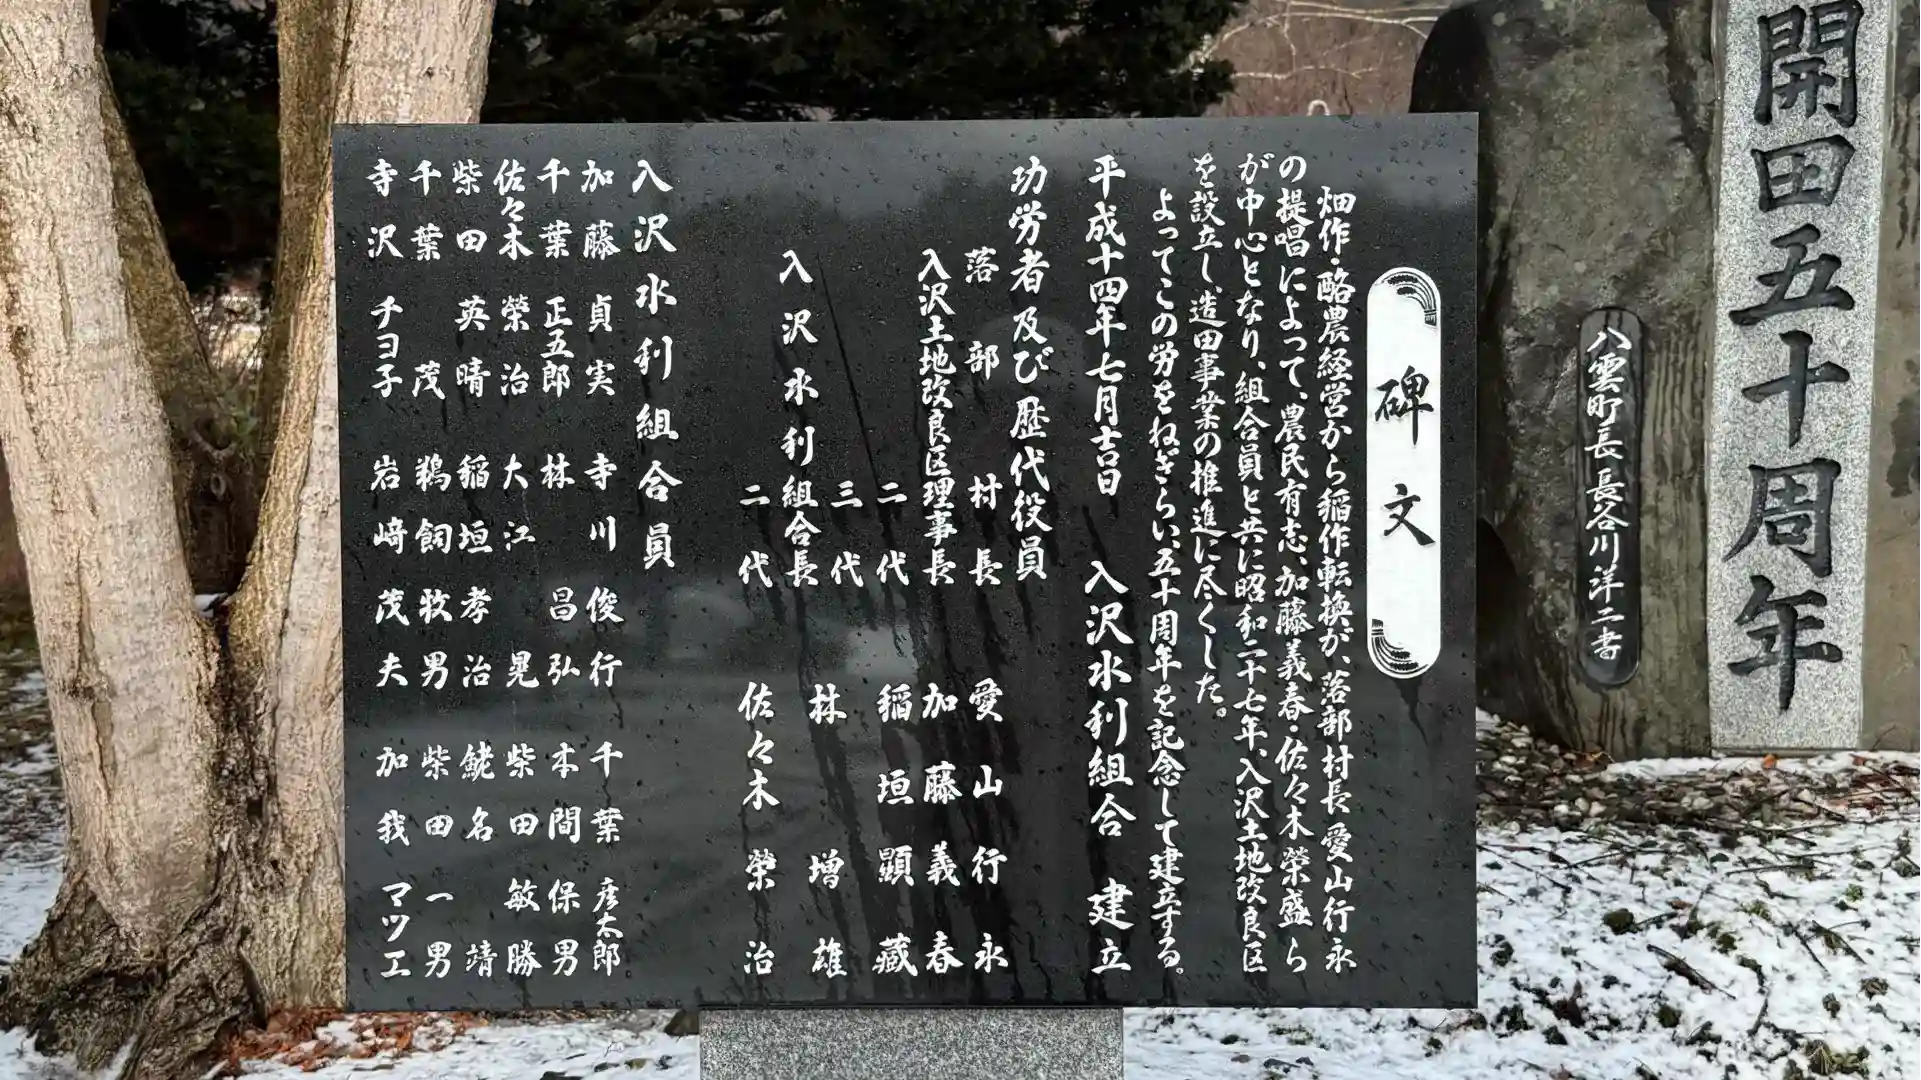 開田五十周年
八雲町長長谷川洋二書
碑文
畑作・酪農経営から稲作転換が、落部村長愛山行永
の提唱によって、農民有志、加藤義春・佐々木榮盛ら
が中心となり、組合員と共に昭和二十七年、入沢土地改良区
を設立し、造田事業の推進に尽くした。
よってこの労をねぎらい、五十周年を記念して建立する。
平成十四年七月吉日 入沢水利組合 建立
功労者及び歴代役員
落部村長 愛山行永
入沢土地改良区理事長 加藤義春
二代 稲垣顕藏
三代 林増雄
入沢水利組合長
二代 佐々木榮治
入沢水利組合員
加藤貞実 寺川俊行 千葉彦太郎
千葉正五郎 林昌弘 本間保男
佐々木榮治 大江晃 柴田敏勝
柴田英晴 稲垣孝治 鮱名靖
千葉茂 鵜飼牧男 柴田一男
寺沢チヨ子 岩崎茂夫 加我マツエ